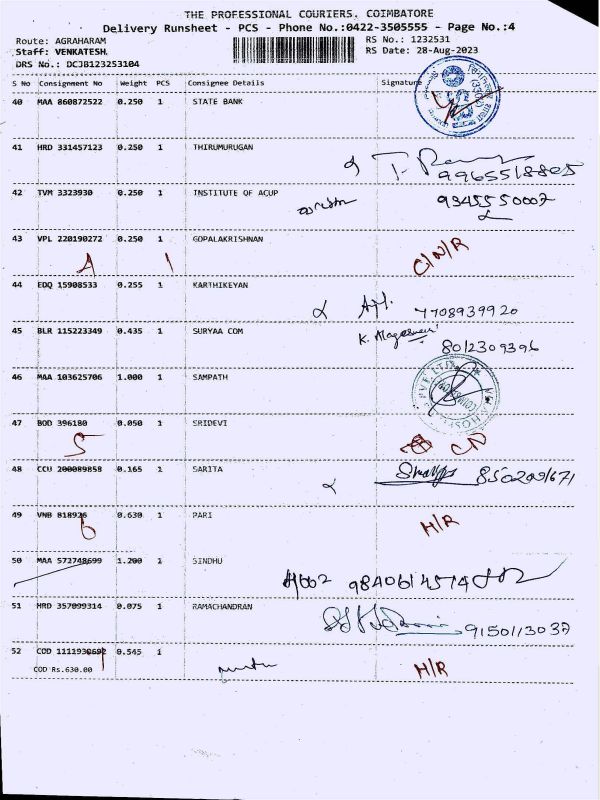 THE PROFESSIONAL COURIERS. COIMBATORE
Delivery Runsheet - PCS - Phone No.:0422-3505555 - Page No.:4
Route: AGRAHARAM RS No.: 1232531
Staff: VENKATESH. RS Date: 28-Aug-2023
DRS No.: DCJB123253104
S No Consignment No Weight PCS Consignee Details Signature
40 MAA 860872522 0.250 1 STATE BANK
41 HRD 331457123 0.250 1 THIRUMURUGAN
9965518805
42 TVM 3323930 0.250 1 INSTITUTE OF ACUP
9345550007
43 VPL 220190272 0.250 1 GOPALAKRISHNAN
C/N/R
44 EDQ 15908533 0.255 1 KARTHIKEYAN
7708939920
45 BLR 115223349 0.435 1 SURYAA COM
K. Alageswari
8012309396
46 MAA 103625706 1.000 1 SAMPATH
47 BOD 396180 0.050 1 SRIDEVI
5
48 CCU 200089858 0.165 1 SARITA
49 VNB 818926 0.630 1 PARI
6 H/R
50 MAA 572748699 1.200 1 SINDHU
9840614574
51 HRD 357099314 0.075 1 RAMACHANDRAN
9150113037
52 COD 1111938692 0.545 1
COD Rs.630.00 H/R